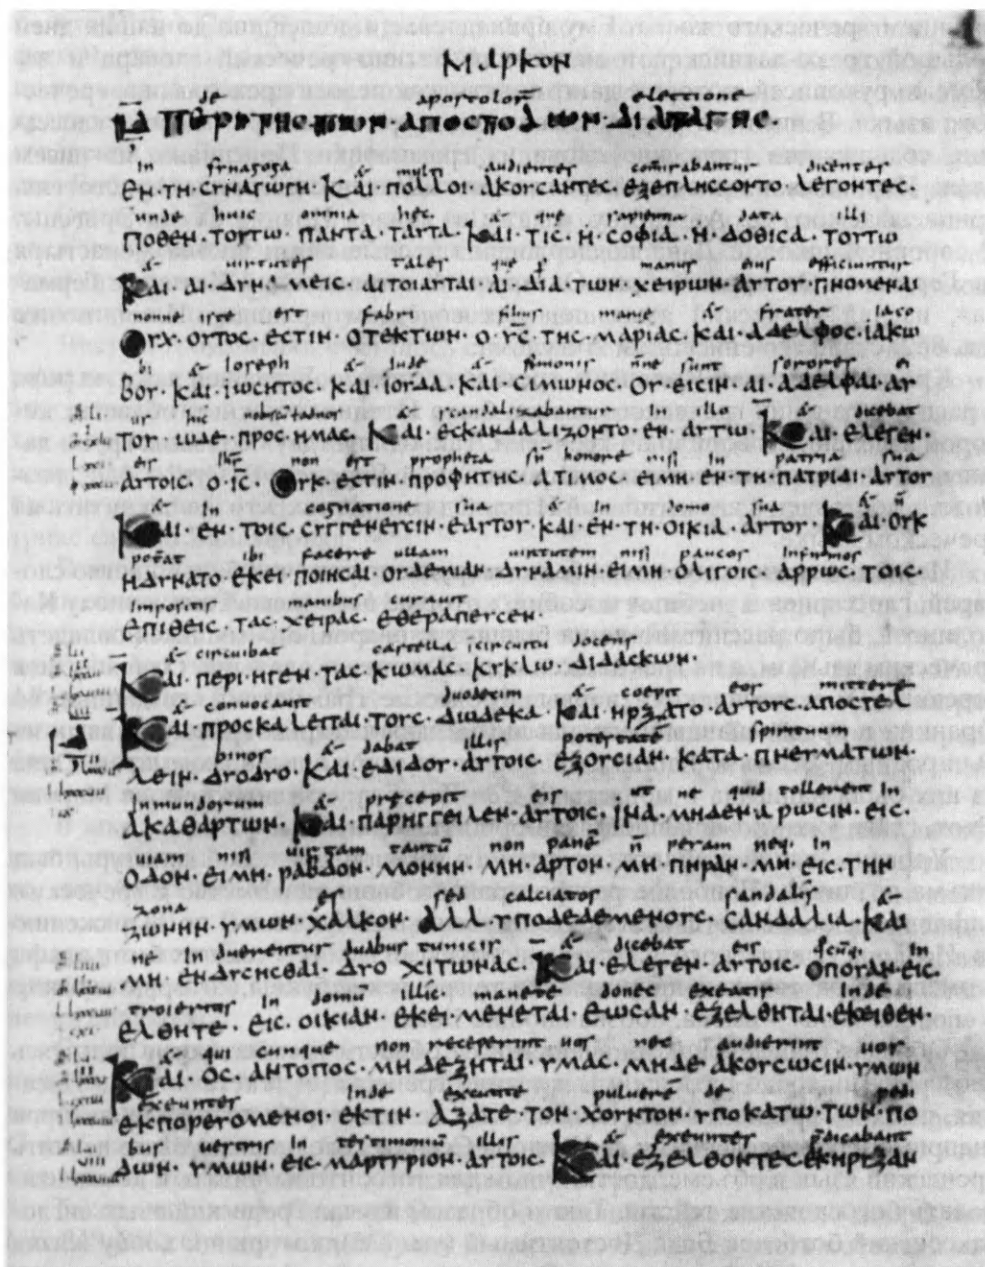 ΜΑΡΚΟΝ
de apostolorū electione
ΠΕΡΙ ΤΗϹ ΤΩΝ ΑΠΟϹΤΟΛΩΝ · ΔΙΑΤΑΓΗϹ ·
In synagoga & multi audientes admirabantur dicentes
ΕΝ · ΤΗ · ϹΥΝΑΓΩΓΗ · ΚΑΙ · ΠΟΛΛΟΙ · ΑΚΟΥϹΑΝΤΕϹ · ΕΞΕΠΛΗϹϹΟΝΤΟ · ΛΕΓΟΝΤΕϹ ·
unde huic omnia hęc & quę sapientia data illi
ΠΟΘΕΝ · ΤΟΥΤΩ · ΠΑΝΤΑ · ΤΑΥΤΑ · ΚΑΙ · ΤΙϹ · Η · ϹΟΦΙΑ · Η · ΔΟΘΙϹΑ · ΤΟΥΤΩ
& uirtutes tales quę manus eius efficiuntur
ΚΑΙ · ΑΙ · ΔΥΝΑΜΕΙϹ · ΑΙΤΟΙΑΥΤΑΙ · ΑΙ · ΔΙΑ · ΤΩΝ · ΧΕΙΡΩΝ · ΑΥΤΟΥ · ΓΙΝΟΜΕΝΑΙ
nonne iste est fabri filius marię & frater iaco
ΟΥΧ · ΟΥΤΟϹ · ΕϹΤΙΝ · ΟΤΕΚΤΩΝ · Ο · ΥϹ · ΤΗϹ · ΜΑΡΙΑϹ · ΚΑΙ · ΑΔΕΛΦΟϹ · ΙΑΚΩ
bi & ioseph & iudę & simonis nne sunt sorores ei
ΒΟΥ · ΚΑΙ · ΙΩϹΗΤΟϹ · ΚΑΙ · ΙΟΥΔΑ · ΚΑΙ · ϹΙΜΩΝΟϹ · ΟΥ · ΕΙϹΙΝ · ΑΙ · ΑΔΕΛΦΑΙ · ΑΥ
us hic nobiscum & scandalizabantur In illo & dicebat
ΤΟΥ · ΩΔΕ · ΠΡΟϹ · ΗΜΑϹ · ΚΑΙ · ΕϹΚΑΝΔΑΛΙΖΟΝΤΟ · ΕΝ · ΑΥΤΩ · ΚΑΙ · ΕΛΕΓΕΝ ·
eis ihs non est propheta sn honore nisi In patria sua
ΑΥΤΟΙϹ · Ο · ΙϹ · ΟΥΚ · ΕϹΤΙΝ · ΠΡΟΦΗΤΗϹ · ΑΤΙΜΟϹ · ΕΙΜΗ · ΕΝ · ΤΗ · ΠΑΤΡΙΔΙ · ΑΥΤΟΥ
In cognatione & In & n̄
ΚΑΙ · ΕΝ · ΤΟΙϹ · ϹΥΓΓΕΝΕΥϹΙΝ · ΕΑΥΤΟΥ · ΚΑΙ · ΕΝ · ΤΗ · ΟΙΚΙΑ · ΑΥΤΟΥ · ΚΑΙ · ΟΥΚ
poterat ibi facere ullam uirtutem nisi paucos Infirmos
ΗΔΥΝΑΤΟ · ΕΚΕΙ · ΠΟΙΗϹΑΙ · ΟΥΔΕΜΙΑΝ · ΔΥΝΑΜΙΝ · ΕΙΜΗ · ΟΛΙΓΟΙϹ · ΑΡΡΩϹ · ΤΟΙϹ ·
Impositis manibus curauit
ΕΠΙΘΕΙϹ · ΤΑϹ · ΧΕΙΡΑϹ · ΕΘΕΡΑΠΕΥϹΕΝ ·
& circuibat castella Icircuitu docens
ΚΑΙ · ΠΕΡΙ · ΗΓΕΝ · ΤΑϹ · ΚΩΜΑϹ · ΚΥΚΛΩ · ΔΙΔΑϹΚΩΝ ·
& conuocauit duodecim & coepit eos mittere
ΚΑΙ · ΠΡΟϹΚΑΛΕΙΤΑΙ · ΤΟΥϹ · ΔΩΔΕΚΑ · ΚΑΙ · ΗΡΞΑΤΟ · ΑΥΤΟΥϹ · ΑΠΟϹΤΕΛ
binos & dabat illis potestatē spirituū
ΛΕΙΝ · ΔΥΟΔΥΟ · ΚΑΙ · ΕΔΙΔΟΥ · ΑΥΤΟΙϹ · ΕΞΟΥϹΙΑΝ · ΚΑΤΑ · ΠΝΕΥΜΑΤΩΝ ·
Inmundorum & pręcepit eis ut ne quid tollerent In
ΑΚΑΘΑΡΤΩΝ · ΚΑΙ · ΠΑΡΗΓΓΕΙΛΕΝ · ΑΥΤΟΙϹ · ΙΝΑ · ΜΗΔΕΝ · ΑΙΡΩϹΙΝ · ΕΙϹ ·
uiam nisi uirgam tantū non panē n̄ peram neq, In
ΟΔΟΝ · ΕΙΜΗ · ΡΑΒΔΟΝ · ΜΟΝΗΝ · ΜΗ · ΑΡΤΟΝ · ΜΗ · ΠΗΡΑΝ · ΜΗ · ΕΙϹ · ΤΗΝ
zona ęs sed calciatos sandalis &
ΖΩΝΗΝ · ΥΜΩΝ · ΧΑΛΚΟΝ · ΑΛΛ · ΥΠΟΔΕΔΕΜΕΝΟΥϹ · ϹΑΝΔΑΛΙΑ · ΚΑΙ
ne Induerentur duabus tunicis & dicebat eis In
ΜΗ · ΕΝΔΥϹΗϹΘΑΙ · ΔΥΟ · ΧΙΤΩΝΑϹ · ΚΑΙ · ΕΛΕΓΕΝ · ΑΥΤΟΙϹ · ΟΠΟΥΑΝ · ΕΙϹ ·
troieritis In domū illic manete donec exeatis Inde
ΕΛΘΗΤΕ · ΕΙϹ · ΟΙΚΙΑΝ · ΕΚΕΙ · ΜΕΝΕΤΑΙ · ΕΩϹΑΝ · ΕΞΕΛΘΗΤΑΙ · ΕΚΕΙΘΕΝ ·
& qui cunque non receperint uos nec audierint uos
ΚΑΙ · ΟϹ · ΑΝΤΟΠΟϹ · ΜΗ ΔΕΞΗΤΑΙ · ΥΜΑϹ · ΜΗΔΕ · ΑΚΟΥϹΩϹΙΝ · ΥΜΩΝ
exeuntes Inde excutite puluerē de pedi
ΕΚΠΟΡΕΥΟΜΕΝΟΙ · ΕΚΤΙΝ · ΑΞΑΤΕ · ΤΟΝ · ΧΟΥΝΤΟΝ · ΥΠΟΚΑΤΩ · ΤΩΝ · ΠΟ
bus uestris In testimoniū illis & exeuntes p̄dicabant
ΔΩΝ · ΥΜΩΝ · ΕΙϹ · ΜΑΡΤΥΡΙΟΝ · ΑΥΤΟΙϹ · ΚΑΙ · ΕΞΕΛΘΟΝΤΕϹ ΕΚΗΡΥΞΑΝ